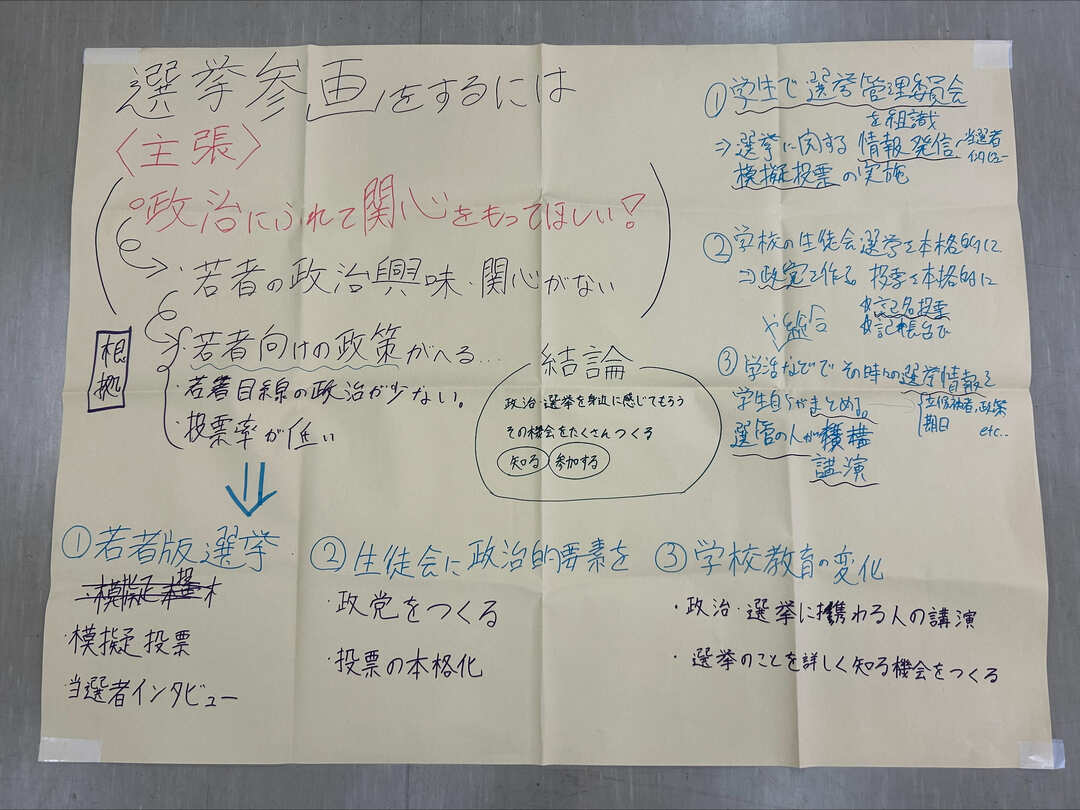 選挙参画をするには
〈主張〉
○政治にふれて関心をもってほしい!
・若者の政治興味・関心がない
根拠
若者向けの政策がへる...
・若者目線の政治が少ない。
・投票率が低い
結論
政治・選挙を身近に感じてもらう
その機会をたくさんつくる
知る 参加する
①若者版選挙
・模擬投票
当選者インタビュー
②生徒会に政治的要素を
・政党をつくる
・投票の本格化
③学校教育の変化
・政治・選挙に携わる人の講演
・選挙のことを詳しく知る機会をつくる
①学生で選挙管理委員会
を組識
⇒選挙に関する情報発信
当選者
インタビュー
模擬投票の実施
②学校の生徒会選挙を本格的に
⇒政党を作る 投票を本格的に
記名投票
記帳台で
総合
③学活などでその時々の選挙情報を
学生自らがまとめる。
立候補者、政策
期日 etc..
選管の人が
講演